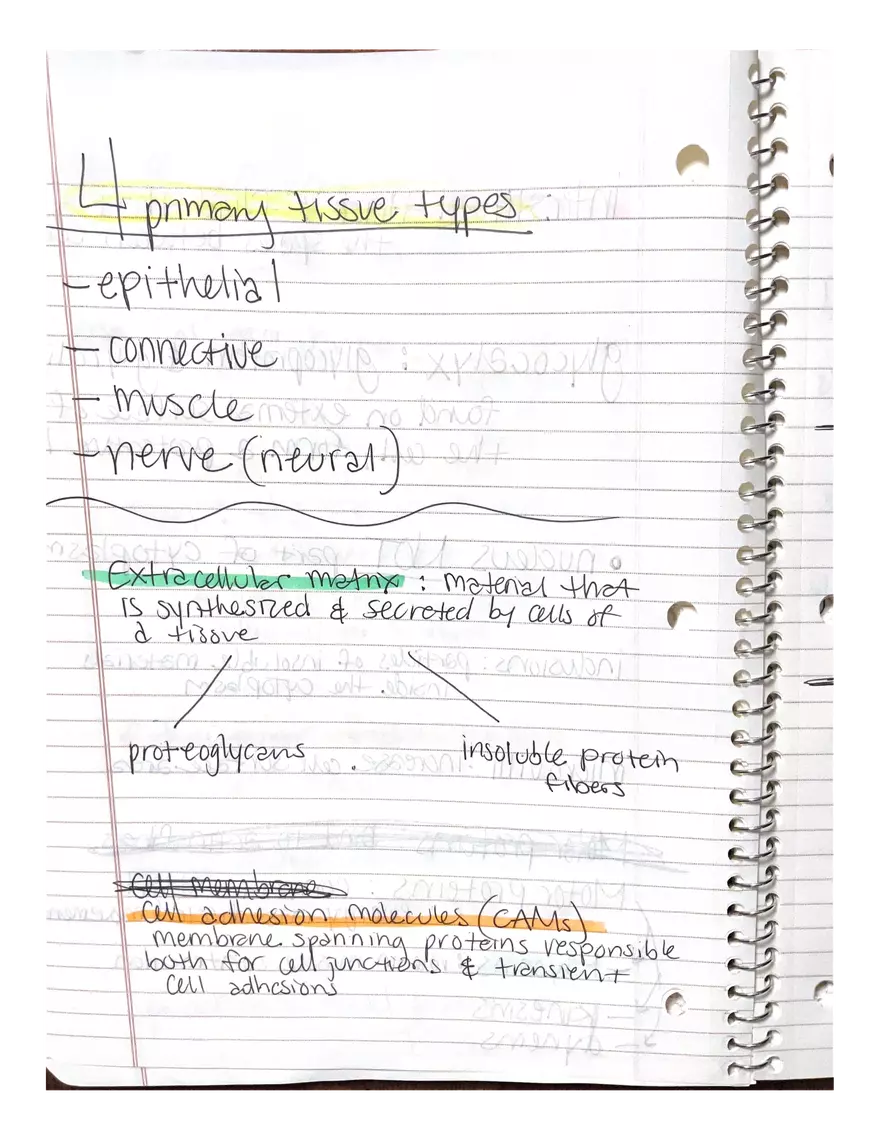 4 primary tissue types:
- epithelial
- connective
- muscle
- nerve (neural)
Extracellular matrix : material that
is synthesized & secreted by cells of
a tissue
proteoglycans
insoluble protein
fibers
cell membrane
cell adhesion molecules (CAMs)
membrane spanning proteins responsible
both for cell junctions & transient
cell adhesions